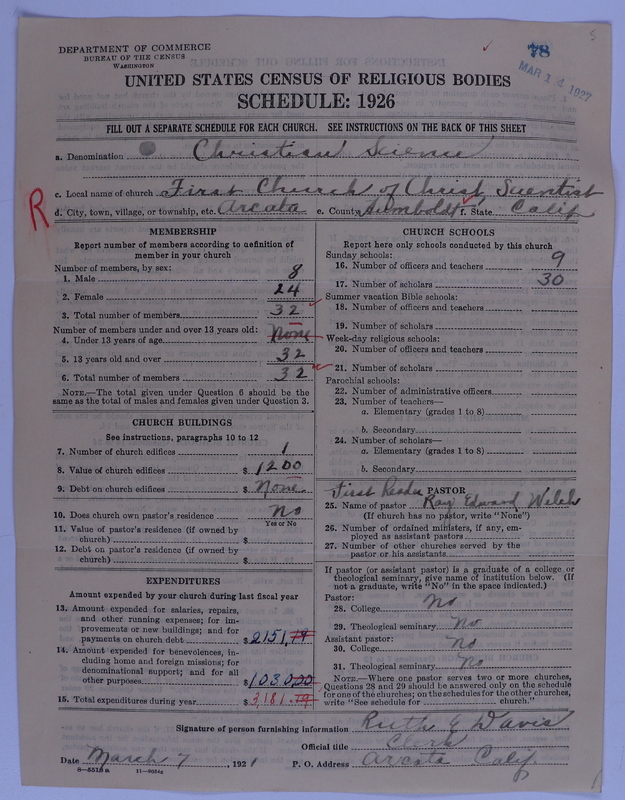 DEPARTMENT OF COMMERCE
BUREAU OF THE CENSUS
WASHINGTON
78
MAR 14 1927
UNITED STATES CENSUS OF RELIGIOUS BODIES
SCHEDULE: 1926
FILL OUT A SEPARATE SCHEDULE FOR EACH CHURCH. SEE INSTRUCTIONS ON THE BACK OF THIS SHEET
a. Denomination Christian Science
c. Local name of church First Church of Christ, Scientist
R
d. City, town, village, or township, etc. Arcata e. County Humboldt f. State Calif
MEMBERSHIP
Report number of members according to definition of
member in your church
Number of members, by sex:
1. Male 8
2. Female 24
3. Total number of members 32
Number of members under and over 13 years old:
4. Under 13 years of age None
5. 13 years old and over 32
6. Total number of members 32
NOTE.—The total given under Question 6 should be
same as the total of males and females given under Question 3.
CHURCH BUILDINGS
See instructions, paragraphs 10 to 12
7. Number of church edifices 1
8. Value of church edifices $1200
9. Debt on church edifices $None
10. Does church own pastor's residence? no
Yes or No
11. Value of pastor's residence (if owned by
church) $
12. Debt on pastor's residence (if owned by
church) $
EXPENDITURES
Amount expended by your church during last fiscal year
13. Amount expended for salaries, repairs,
and other running expenses; for im-
provements or new buildings; and for
payments on church debt $2151.19
14. Amount expended for benevolences, in-
cluding home and foreign missions; for
denominational support; and for all
other purposes $1030.00
15. Total expenditures during year $3,181.19
CHURCH SCHOOLS
Report here only schools conducted by this church
Sunday schools:
16. Number of officers and teachers 9
17. Number of scholars 30
Summer vacation Bible schools:
18. Number of officers and teachers
19. Number of scholars
Week-day religious schools:
20. Number of officers and teachers
21. Number of scholars
Parochial schools:
22. Number of administrative officers
23. Number of teachers—
a. Elementary (grades 1 to 8)
b. Secondary
24. Number of scholars—
a. Elementary (grades 1 to 8)
b. Secondary
First Reader PASTOR
25. Name of pastor Ray Edward Welsh
(If church has no pastor, write "None")
26. Number of ordained ministers, if any, em-
ployed as assistant pastors
27. Number of other churches served by the
pastor or his assistants
If pastor (or assistant pastor) is a graduate of a college or
theological seminary, give name of institution below. (If
not a graduate, write "No" in the space indicated.)
Pastor:
28. College No
29. Theological seminary No
Assistant pastor:
30. College No
31. Theological seminary No
NOTE.—Where one pastor serves two or more churches,
Questions 28 and 29 should be answered only on the schedule
for one of the churches; on the schedules for the other churches,
write "See schedule for church."
Signature of person furnishing information Ruth E Davis
Official title Clerk
Date March 7, 1921 P. O. Address Arcata Calif
8—5518a 11—9034g